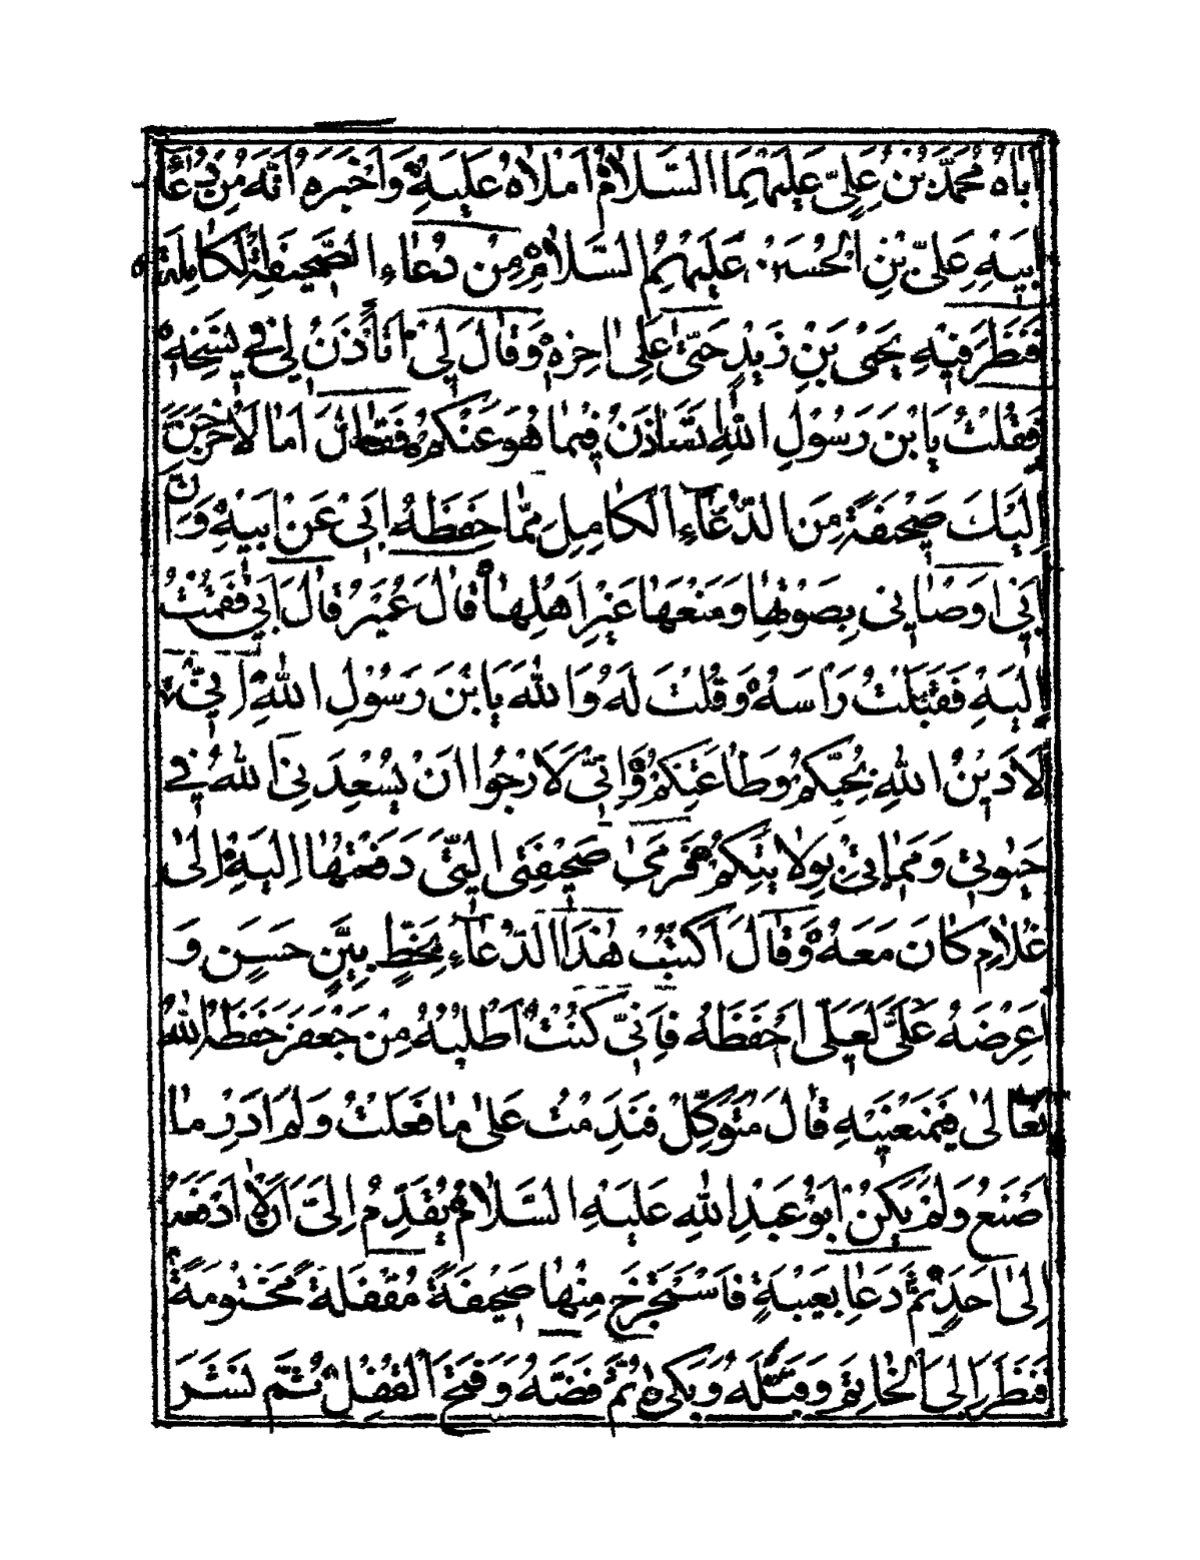 اَبَاهُ مُحَمَّدَ بْنَ عَلِيٍّ عَلَيْهِمَا السَّلَامُ اَمْلَاهُ عَلَيْهِ وَاَخْبَرَهُ اَنَّهُ مِنْ دُعَاءِ
اَبِيهِ عَلِيِّ بْنِ الْحُسَيْنِ عَلَيْهِمُ السَّلَامُ مِنْ دُعَاءِ الصَّحِيفَةِ الْكَامِلَةِ
فَنَظَرَ فِيْهِ يَحْيَى بْنِ زَيْدٍ حَتّٰى عَلٰى اٰخِرِهِ وَقَالَ لِيْ اَتَأْذَنُ لِيْ فِيْ نَسْخِهِ
فَقُلْتُ يَابْنَ رَسُوْلِ اللهِ تَسْتَاْذِنُ فِيْمَا هُوَ عَنْكُمْ فَقَالَ اَمَا لَاُخْرِجَنَّ
اِلَيْكَ صَحِيْفَةً مِنَ الدُّعَآءِ الْكَامِلِ مِمَّا حَفِظَهُ اَبِيْ عَنْ اَبِيْهِ وَاَنَّ
اَبِيْ اَوْصَانِيْ بِصَوْنِهَا وَمَنْعِهَا غَيْرَ اَهْلِهَا قَالَ عُمَيْرٌ قَالَ اَبِيْ فَقُمْتُ
اِلَيْهِ فَقَبَّلْتُ رَاْسَهُ وَقُلْتُ لَهُ وَاللهِ يَابْنَ رَسُوْلِ اللهِ اِنِّيْ
لَاَدِيْنُ اللهَ بِحُبِّكُمْ وَطَاعَتِكُمْ وَاِنِّيْ لَاَرْجُوْا اَنْ يُسْعِدَنِيْ اللهُ فِيْ
حَيٰوتِيْ وَمَمَاتِيْ بِوِلَايَتِكُمْ فَرَمٰى صَحِيْفَتِيَ الَّتِيْ دَفَعْتُهَا اِلَيْهِ اِلٰى
غُلَامٍ كَانَ مَعَهُ وَقَالَ اكْتُبْ هٰذَا الدُّعَآءَ بِخَطٍّ بَيِّنٍ حَسَنٍ وَ
اَعْرِضْهُ عَلَيَّ لَعَلِّيْ اَحْفَظُهُ فَاِنِّيْ كُنْتُ اَطْلُبُهُ مِنْ جَعْفَرَ حَفِظَهُ اللهُ
تَعَالٰى فَيَمْنَعُنِيْهِ قَالَ مُتَوَكِّلٌ فَنَدِمْتُ عَلٰى مَا فَعَلْتُ وَلَمْ اَدْرِ مَا
اَصْنَعُ وَلَمْ يَكُنْ اَبُوْ عَبْدِ اللهِ عَلَيْهِ السَّلَامُ يُقَدِّمُ اِلَيَّ اَلَّا اَدْفَعَهُ
اِلٰى اَحَدٍ ثُمَّ دَعَا بِعَيْبَةٍ فَاسْتَخْرَجَ مِنْهَا صَحِيْفَةً مُقْفَلَةً مَخْتُوْمَةً
فَنَظَرَ اِلَى الْخَاتَمِ وَقَبَّلَهُ وَبَكٰى ثُمَّ فَضَّهُ وَفَتَحَ الْقُفْلَ ثُمَّ نَشَرَ